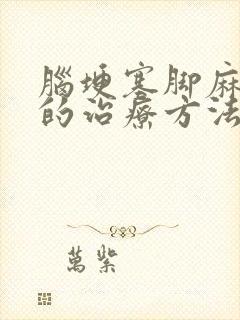 腦埂塞脚麻
的治療方法
萬紫